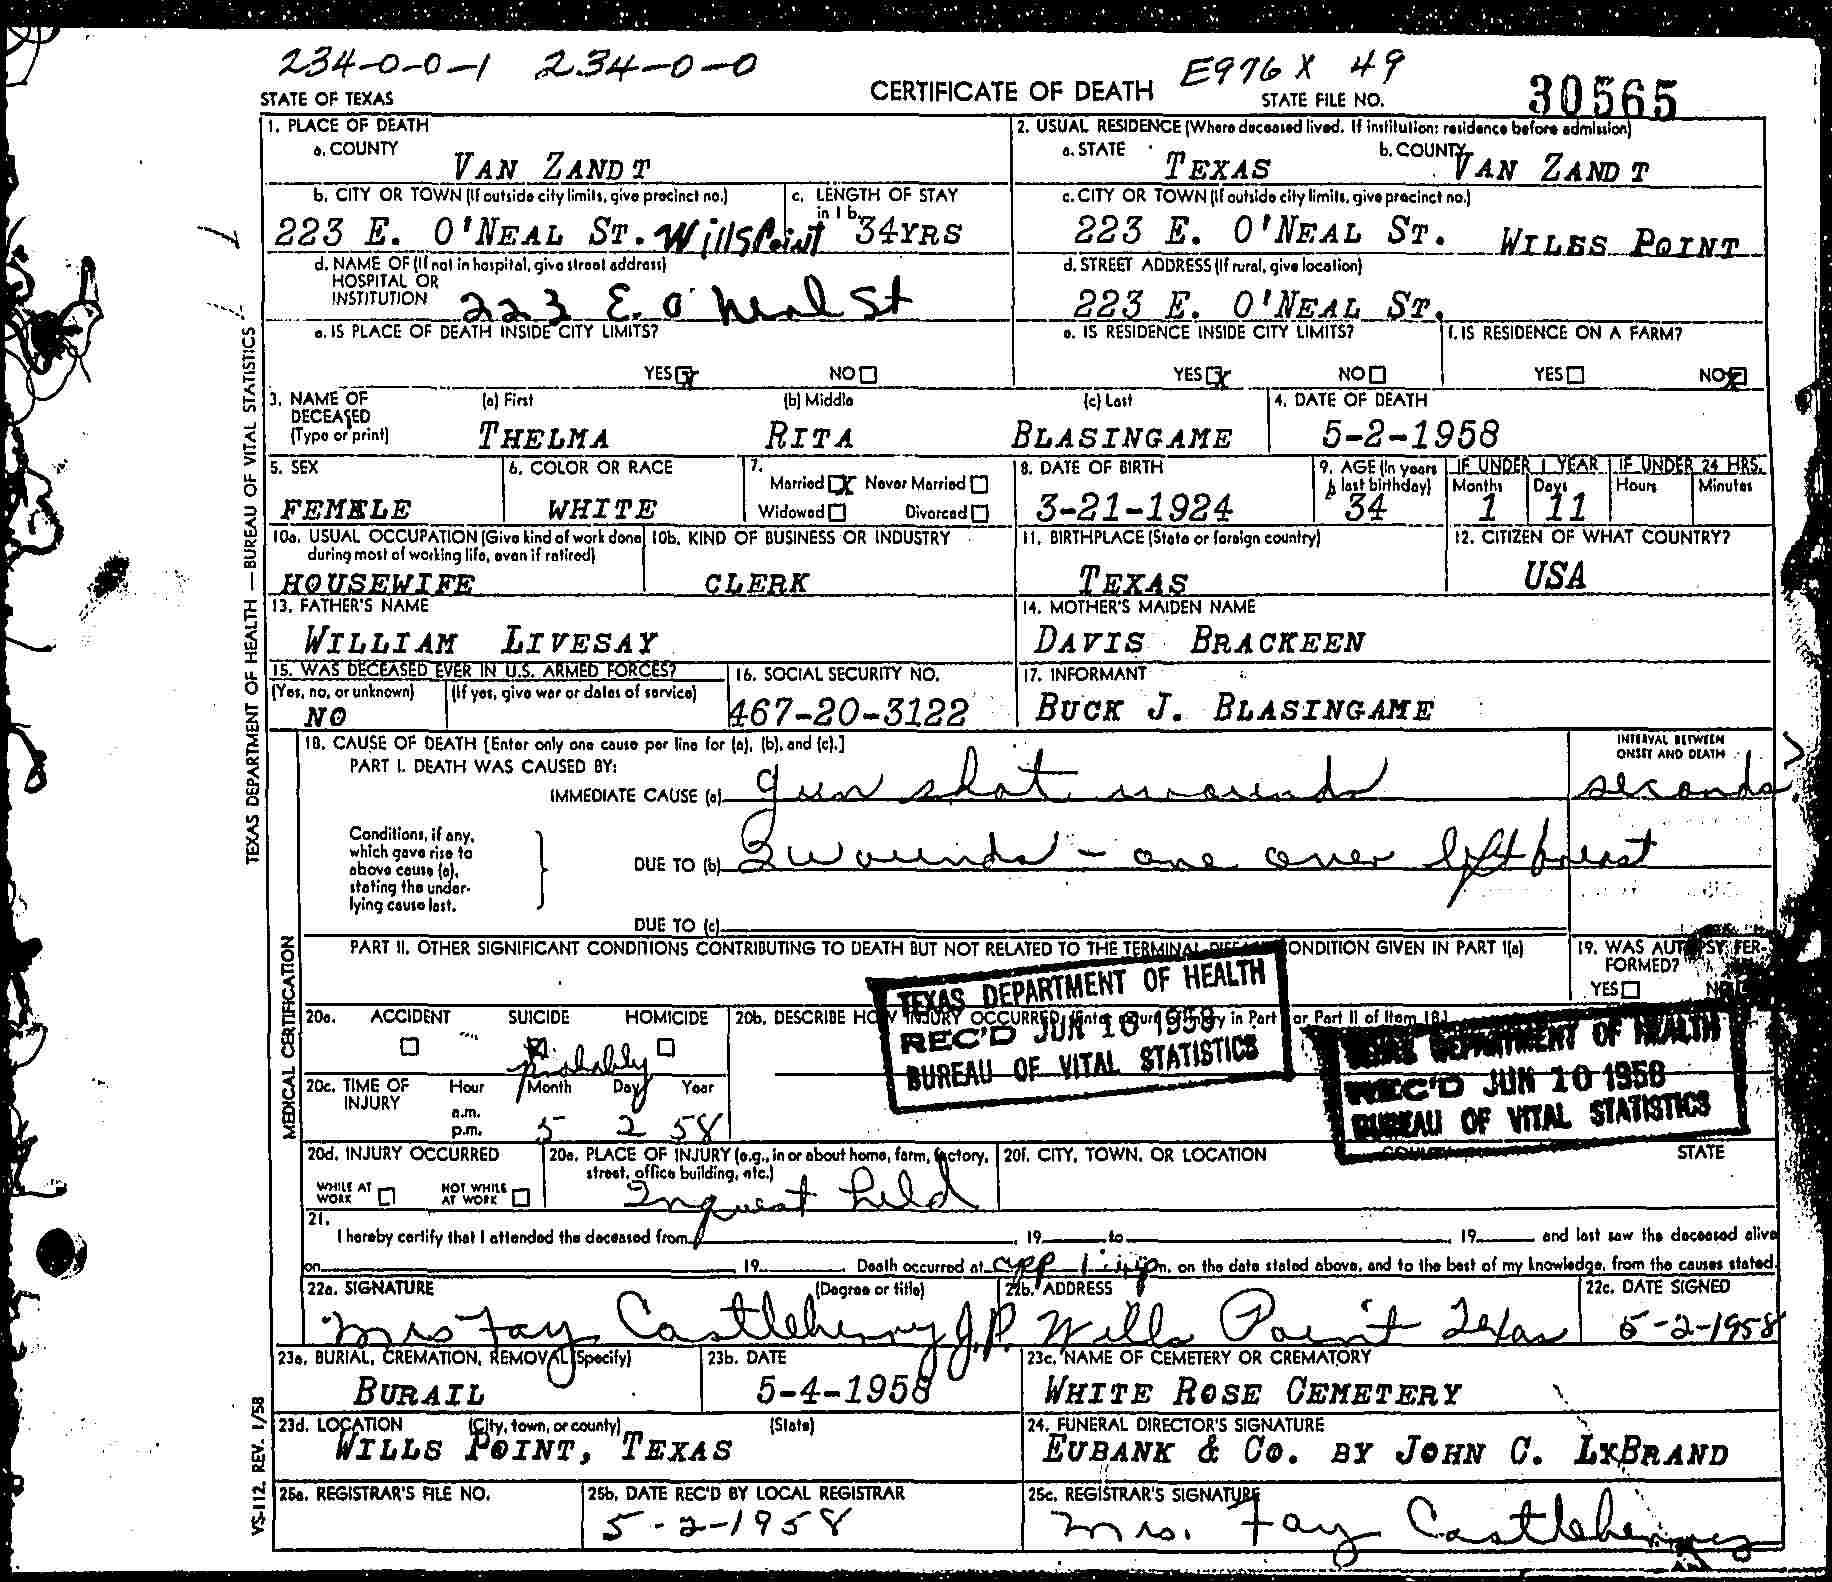 234-0-0-1 234-0-0 E976 X 49
STATE OF TEXAS CERTIFICATE OF DEATH STATE FILE NO. 30565
1. PLACE OF DEATH
a. COUNTY
VAN ZANDT
2. USUAL RESIDENCE (Where deceased lived. If institution: residence before admission)
a. STATE b. COUNTY
TEXAS VAN ZANDT
b. CITY OR TOWN (If outside city limits, give precinct no.) c. LENGTH OF STAY in 1 b.
223 E. O'NEAL ST. Wills Point 34YRS
c. CITY OR TOWN (If outside city limits, give precinct no.)
223 E. O'NEAL ST. WILLS POINT
d. NAME OF (If not in hospital, give street address)
HOSPITAL OR
INSTITUTION 223 E. O'Neal St
d. STREET ADDRESS (If rural, give location)
223 E. O'NEAL ST.
e. IS PLACE OF DEATH INSIDE CITY LIMITS?
YES X NO
e. IS RESIDENCE INSIDE CITY LIMITS?
YES X NO
f. IS RESIDENCE ON A FARM?
YES NO X
3. NAME OF DECEASED (Type or print)
(a) First (b) Middle (c) Last
THELMA RITA BLASINGAME
4. DATE OF DEATH
5-2-1958
5. SEX
FEMALE
6. COLOR OR RACE
WHITE
7.
Married X Never Married
Widowed Divorced
8. DATE OF BIRTH
3-21-1924
9. AGE (In years last birthday)
34
IF UNDER 1 YEAR IF UNDER 24 HRS.
Months Days Hours Minutes
1 11
10a. USUAL OCCUPATION (Give kind of work done during most of working life, even if retired)
HOUSEWIFE
10b. KIND OF BUSINESS OR INDUSTRY
CLERK
11. BIRTHPLACE (State or foreign country)
TEXAS
12. CITIZEN OF WHAT COUNTRY?
USA
13. FATHER'S NAME
WILLIAM LIVESAY
14. MOTHER'S MAIDEN NAME
DAVIS BRACKEEN
15. WAS DECEASED EVER IN U.S. ARMED FORCES?
(Yes, no, or unknown) (If yes, give war or dates of service)
NO
16. SOCIAL SECURITY NO.
467-20-3122
17. INFORMANT
BUCK J. BLASINGAME
18. CAUSE OF DEATH [Enter only one cause per line for (a), (b), and (c).]
PART I. DEATH WAS CAUSED BY:
INTERVAL BETWEEN ONSET AND DEATH
IMMEDIATE CAUSE (a) gun shot wounds seconds
Conditions, if any,
which gave rise to
above cause (a),
stating the under-
lying cause last.
DUE TO (b) 2 wounds - one over left breast
DUE TO (c)
PART II. OTHER SIGNIFICANT CONDITIONS CONTRIBUTING TO DEATH BUT NOT RELATED TO THE TERMINAL DISEASE CONDITION GIVEN IN PART I(a)
19. WAS AUTOPSY PERFORMED?
YES NO
TEXAS DEPARTMENT OF HEALTH
REC'D JUN 10 1958
BUREAU OF VITAL STATISTICS
TEXAS DEPARTMENT OF HEALTH
REC'D JUN 10 1958
BUREAU OF VITAL STATISTICS
20a. ACCIDENT SUICIDE HOMICIDE
X probably
20b. DESCRIBE HOW INJURY OCCURRED. (Enter nature of injury in Part I or Part II of Item 18.)
20c. TIME OF INJURY Hour Month Day Year
a.m.
p.m. 5 2 58
20d. INJURY OCCURRED
WHILE AT WORK NOT WHILE AT WORK
20e. PLACE OF INJURY (e.g., in or about home, farm, factory, street, office building, etc.)
Inquest held
20f. CITY, TOWN, OR LOCATION COUNTY STATE
21.
I hereby certify that I attended the deceased from 19 to 19 and last saw the deceased alive
on 19 Death occurred at app m. on the date stated above, and to the best of my knowledge, from the causes stated.
22a. SIGNATURE (Degree or title)
Mrs Fay Castleberry J.P.
22b. ADDRESS
Wills Point Texas
22c. DATE SIGNED
5-2-1958
23a. BURIAL, CREMATION, REMOVAL (Specify)
BURAIL
23b. DATE
5-4-1958
23c. NAME OF CEMETERY OR CREMATORY
WHITE ROSE CEMETERY
23d. LOCATION (City, town, or county) (State)
WILLS POINT, TEXAS
24. FUNERAL DIRECTOR'S SIGNATURE
EUBANK & CO. BY JOHN C. LYBRAND
25a. REGISTRAR'S FILE NO.
25b. DATE REC'D BY LOCAL REGISTRAR
5-2-1958
25c. REGISTRAR'S SIGNATURE
Mrs. Fay Castleberry
TEXAS DEPARTMENT OF HEALTH — BUREAU OF VITAL STATISTICS
MEDICAL CERTIFICATION
VS-112. REV. 1/58